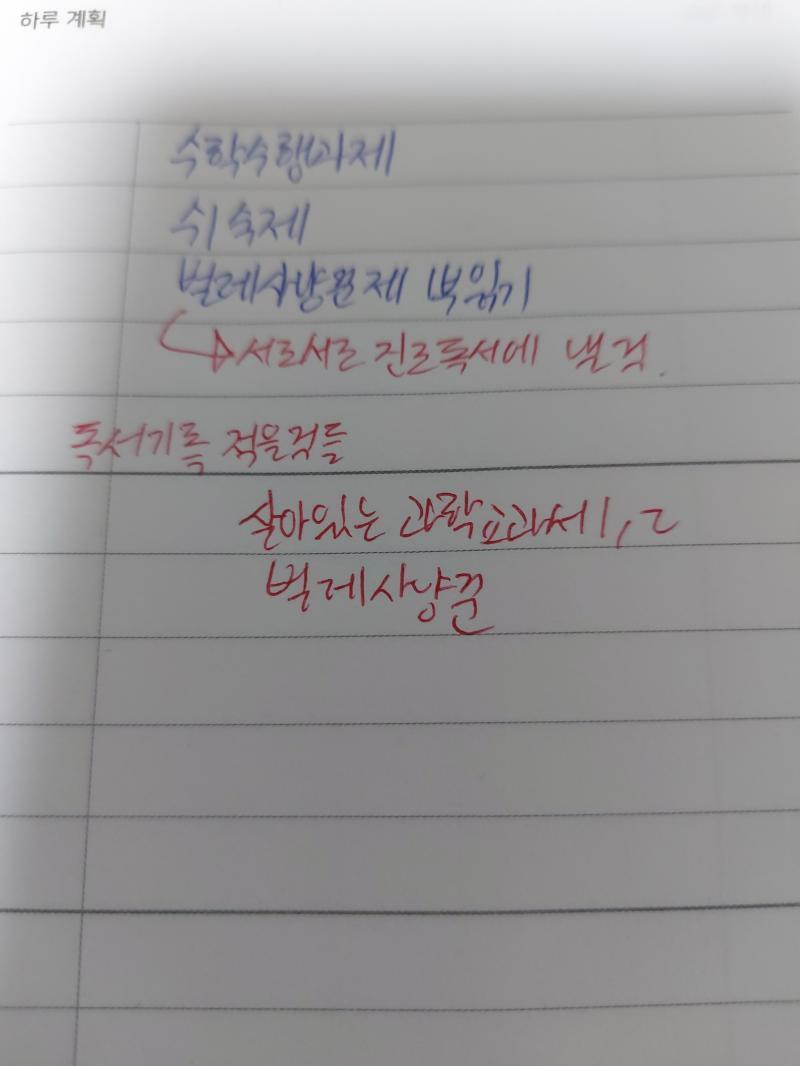 하루 계획
수학수행과제
쉬 숙제
벌레사냥꾼 제 북읽기
서로서로 진로독서에 낼 것.
독서기록 적을것들
살아있는 과학교과서 1, 2
벌레사냥꾼